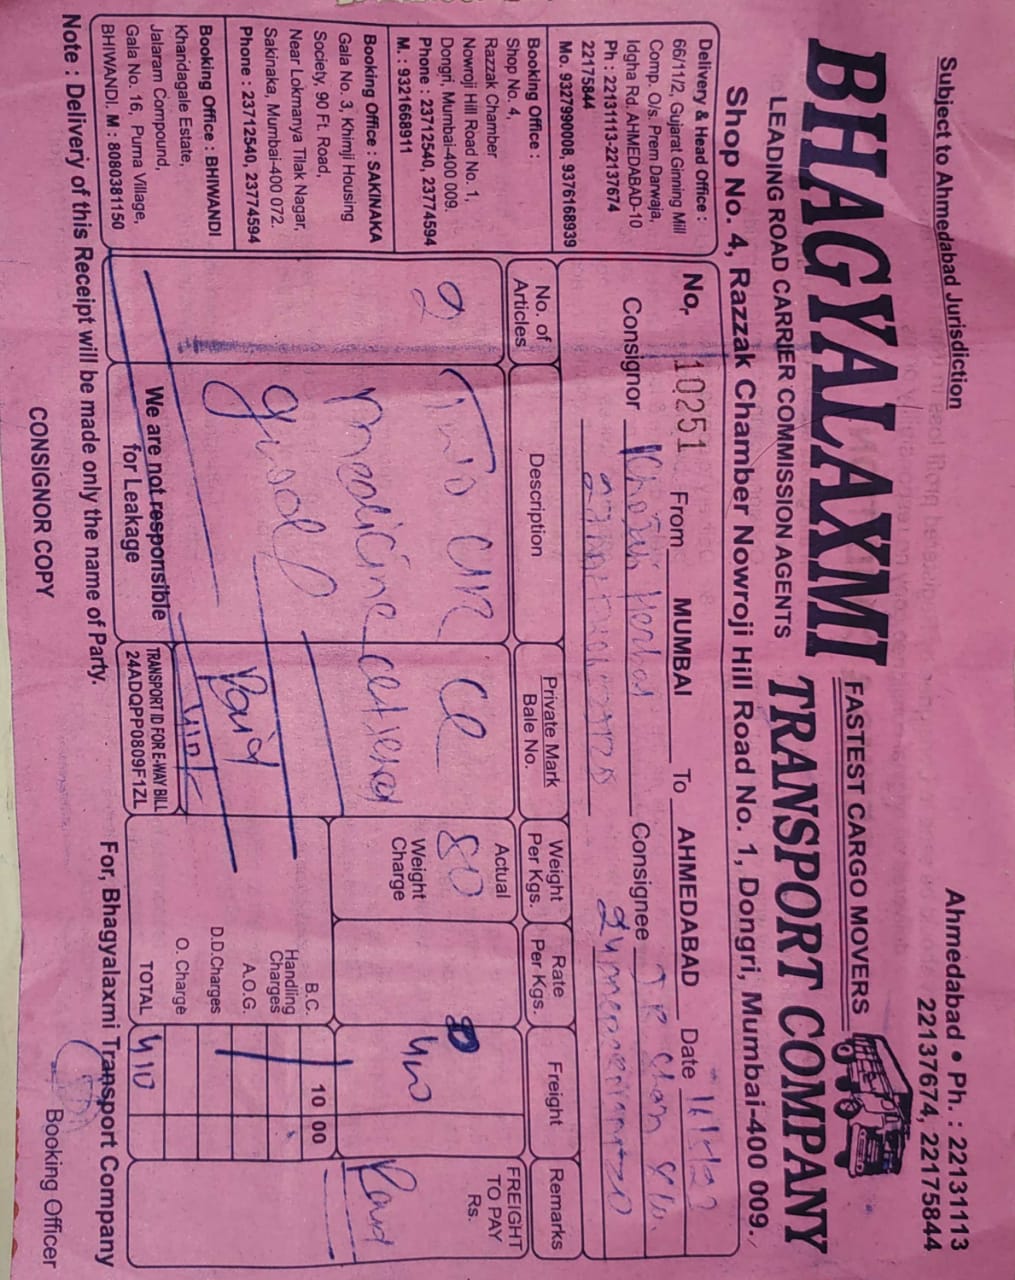 Subject to Ahmedabad Jurisdiction
Ahmedabad • Ph. : 22131113
22137674, 22175844
BHAGYALAXMI
FASTEST CARGO MOVERS
LEADING ROAD CARRIER COMMISSION AGENTS
TRANSPORT COMPANY
Shop No. 4, Razzak Chamber Nowroji Hill Road No. 1, Dongri, Mumbai-400 009.
Delivery & Head Office :
66/11/2, Gujarat Ginning Mill
Comp. O/s. Prem Darwaja,
Idgha Rd. AHMEDABAD-10
Ph : 22131113-22137674
22175844
Mo. 9327990008, 9376168939
Booking Office :
Shop No. 4,
Razzak Chamber
Nowroji Hill Road No. 1,
Dongri, Mumbai-400 009.
Phone : 23712540, 23774594
M. : 9321668911
Booking Office : SAKINAKA
Gala No. 3, Khimji Housing
Society, 90 Ft. Road,
Near Lokmanya Tilak Nagar,
Sakinaka, Mumbai-400 072.
Phone : 23712540, 23774594
Booking Office : BHIWANDI
Khandagale Estate,
Jalaram Compound,
Gala No. 16, Purna Village,
BHIWANDI. M : 8080381150
No. 10251 From MUMBAI To AHMEDABAD Date
Consignor Herbal Consignee
No. of Articles
Description
Private Mark
Bale No.
Weight Per Kgs.
Rate Per Kgs.
Freight
Remarks
2
Two
medicine
Actual
80
Weight
Charge
400
FREIGHT
TO PAY
Rs.
Paid
Paid
B.C. 10 00
Handling
Charges
A.O.G.
D.D.Charges
O. Charge
TOTAL 410
We are not responsible
for Leakage
TRANSPORT ID FOR E-WAY BILL
24ADQPP0809F1ZL
Note : Delivery of this Receipt will be made only the name of Party.
For, Bhagyalaxmi Transport Company
CONSIGNOR COPY
Booking Officer